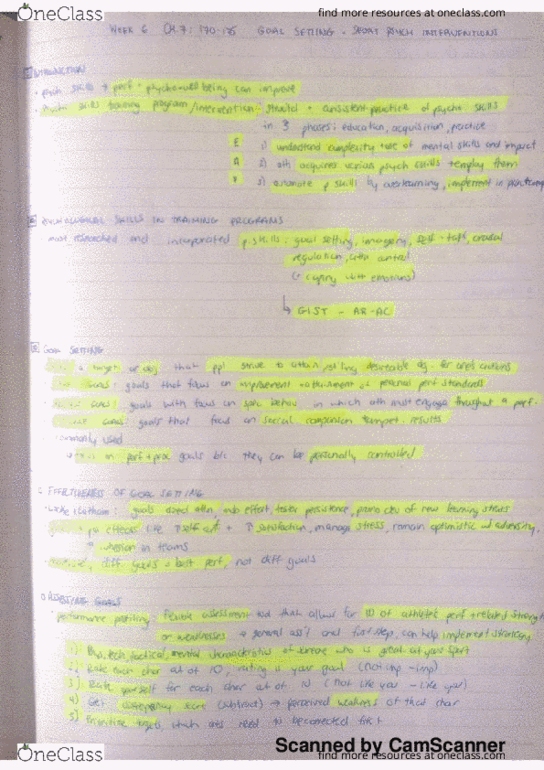 OneClass
find more resources at oneclass.com
WEEK 6 CH 7: 170-175 GOAL SETTING - SPORT PSYCH INTERVENTIONS
INTRODUCTION
psych skills → perf + psycho well being can improve
Psych skills training program/intervention: structd + consistent practice of psycho skills
in 3 phases: education, acquisition, practice
E 1) understand complexity role of mental skills and impact
A 2) ath acquires various psych skills + employ them
P 3) automate p skills by overlearning, implement in
PSYCHOLOGICAL SKILLS IN TRAINING PROGRAMS
most researched and incorporated p.skills: goal setting, imagery, self-talk, arousal
regulation, attn control
(+ coping with emotions)
↳ GIST - AR-AC
GOAL SETTING
that ppl strive to attain
goals that focus on improvement + attainment of personal perf standards
goals with focus on spec behav in which ath must engage throughout a perf.
goals that focus on social comparison + compet. results
used
on perf + proc goals b/c they can be personally controlled
EFFECTIVENESS OF GOAL SETTING
goals direct attn, mob effort, foster persistence, promo dev of new learning strats
satisfaction, manage stress, remain optimistic adversity,
in teams
diff goals = best perf, not diff goals
ASSESSING GOALS
performance profiling: flexible assessment tool that allow for ID of athletes perf + related strengths
or weaknesses → general ass't and first step, can help implement strategies
1) Phy, tech, tactical, mental characteristics of someone who is great at your sport
2) Rate each char out of 10, rating is your goal (not imp - imp)
3) Rate yourself for each char out of 10 (not like you - like you)
4) Get discrepancy score (subtract) → perceived weakness of that char
5) Prioritize targets which ones need to be corrected first
Scanned by CamScanner
OneClass
find more resources at oneclass.com